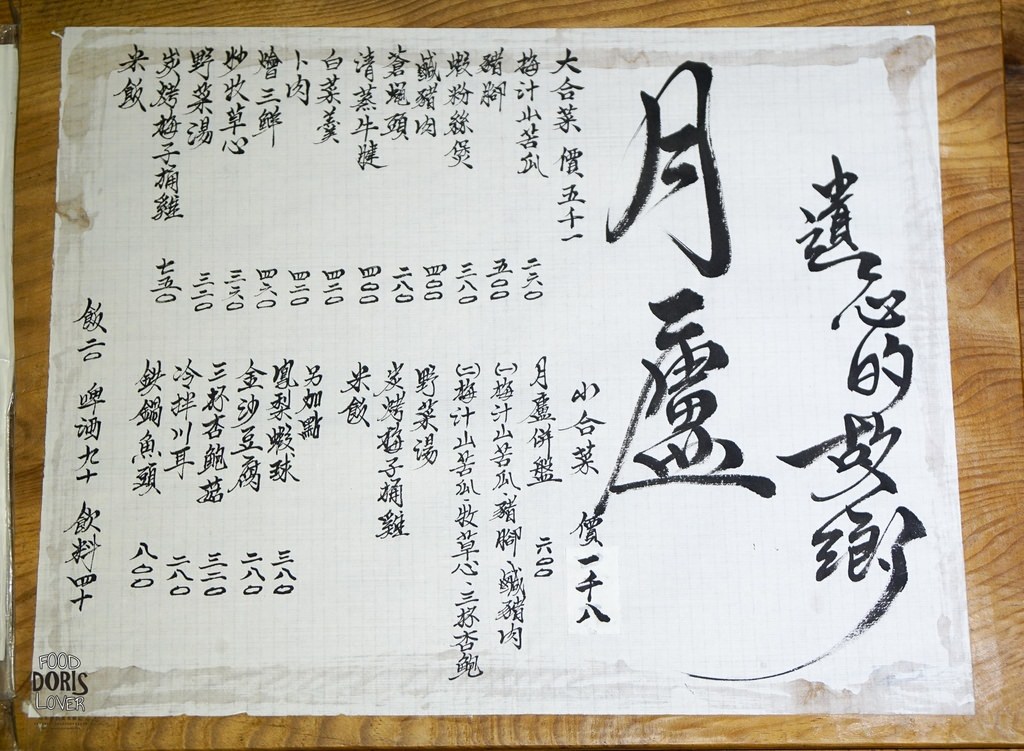 遺忘的故鄉
月廬
大合菜 價五千一
梅汁山苦瓜 二六〇
豬腳 五〇〇
蝦粉絲煲 三八〇
鹹豬肉 四〇〇
蒼蠅頭 二八〇
清蒸牛腱 四〇〇
白菜羹 四二〇
卜肉 四二〇
燴三鮮 四六〇
炒牧草心 三六〇
野菜湯 三二〇
炭烤梅子桶雞 七五〇
米飯
小合菜 價一千八
月廬併盤 六〇〇
㈠梅汁山苦瓜、豬腳、鹹豬肉
㈡梅汁山苦瓜、牧草心、三杯杏鮑
野菜湯
炭烤梅子桶雞
米飯
另加點
鳳梨蝦球 三八〇
金沙豆腐 二八〇
三杯杏鮑菇 三二〇
冷拌川耳 二八〇
鐵鍋魚頭 八〇〇
飯二〇 啤酒九十 飲料四十
FOOD
DORIS
LOVER